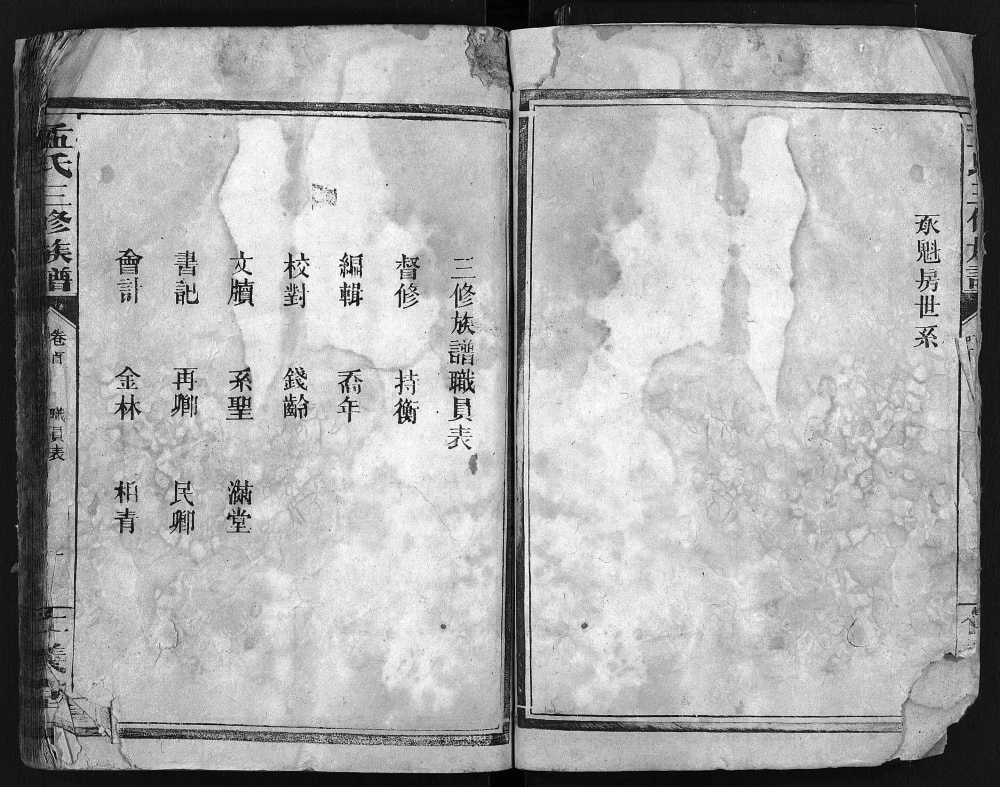 承魁房世系
三修族譜職員表
督修 持衡
編輯 喬年
校對 錢齡
文牘 系聖 滿堂
書記 再卿 民卿
會計 金林 栢青
孟氏三修族譜
卷首
職員表